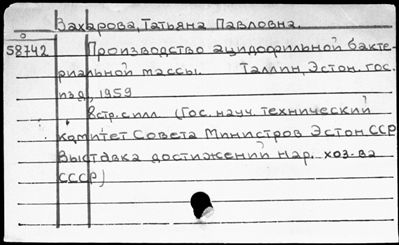 Захарова, Татьяна Павловна.
58742 Производство ацидофильной бакте-
риальной массы. Таллин, Эстон. гос.
изд, 1959
8 стр. с илл. (Гос. науч. технический
комитет Совета Министров Эстон ССР
Выставка достижений нар. хоз-ва
СССР)